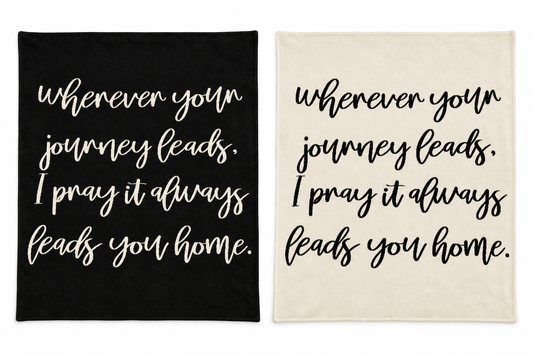 wherever your
journey leads,
I pray it always
leads you home.
wherever your
journey leads,
I pray it always
leads you home.